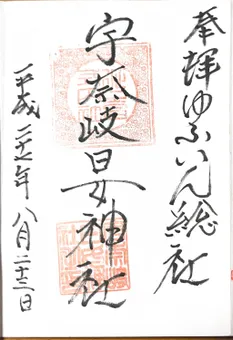 奉拜ゆふいん総社
宇奈岐日女神社
平成二十七年八月二十三日